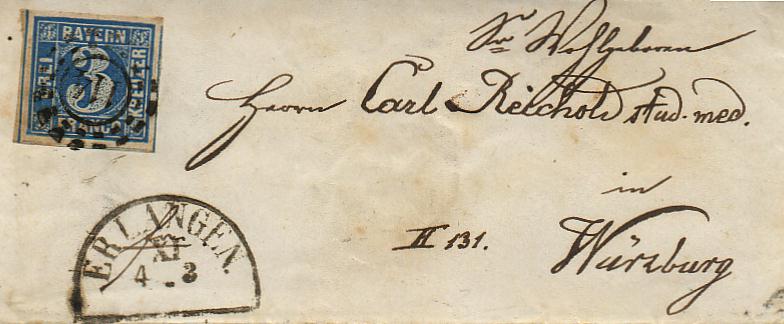 BAYERN
DREI
3
KREUZER
FRANCO
Sr Wohlgeboren
Herrn Carl Reichold stud. med.
in
Würzburg
II 131.
ERLANGEN.
XI
4 . 3